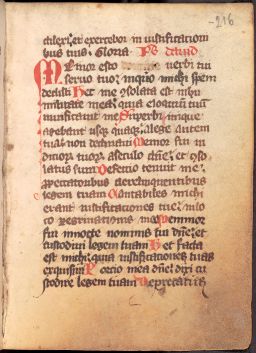 -216
dilexi et exercebor in iustificationi
bus tuis. Gloria. Ps david
Memor esto verbi tui
servo tuo in quo michi spem
dedisti Hec me cōsolata est in hu
militate mea quia eloquiū tuū
vivificavit me Superbi inique
agebant usq; quaq; a lege autem
tua non declinavi Memor fui iu
dicior tuor a seculo dñe et cōso
latus sum Defectio tenuit me
p peccatoribus derelinquentibus
legem tuam Cantabiles michi
erant iustificationes tue in lo
co pegrinationis mee Memor
fui in nocte nominis tui dñe et
custodivi legem tuam Hec facta
est michi quia iustificationes tuas
exquisivi Portio mea dñe dixi cu
stodire legem tuam Deprecatus